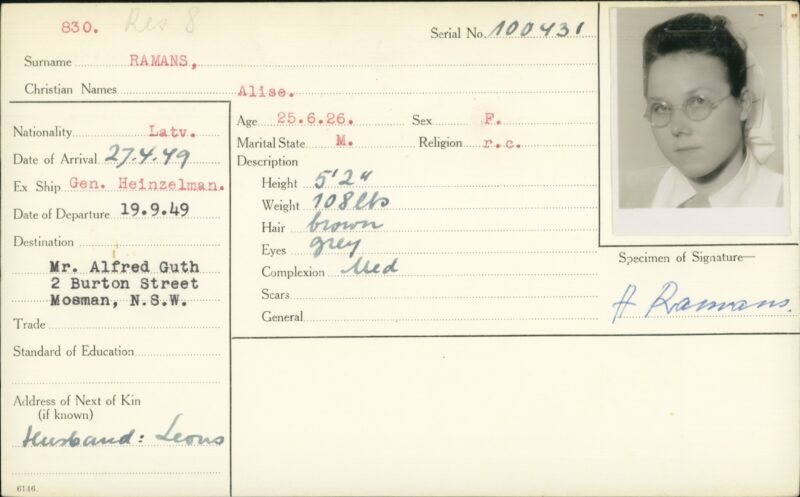 830. Res 8
Serial No. 100431
Surname RAMANS,
Christian Names Alise.
Age 25.6.26. Sex F.
Marital State M. Religion r.c.
Description
Height 5'2"
Weight 108 lbs
Hair brown
Eyes grey
Complexion Med
Scars
General
Nationality Latv.
Date of Arrival 27.4.49
Ex Ship Gen. Heinzelman.
Date of Departure 19.9.49
Destination
Mr. Alfred Guth
2 Burton Street
Mosman, N.S.W.
Trade
Standard of Education
Address of Next of Kin
(if known)
Husband: Leons
6146.
Specimen of Signature—
A Ramans.